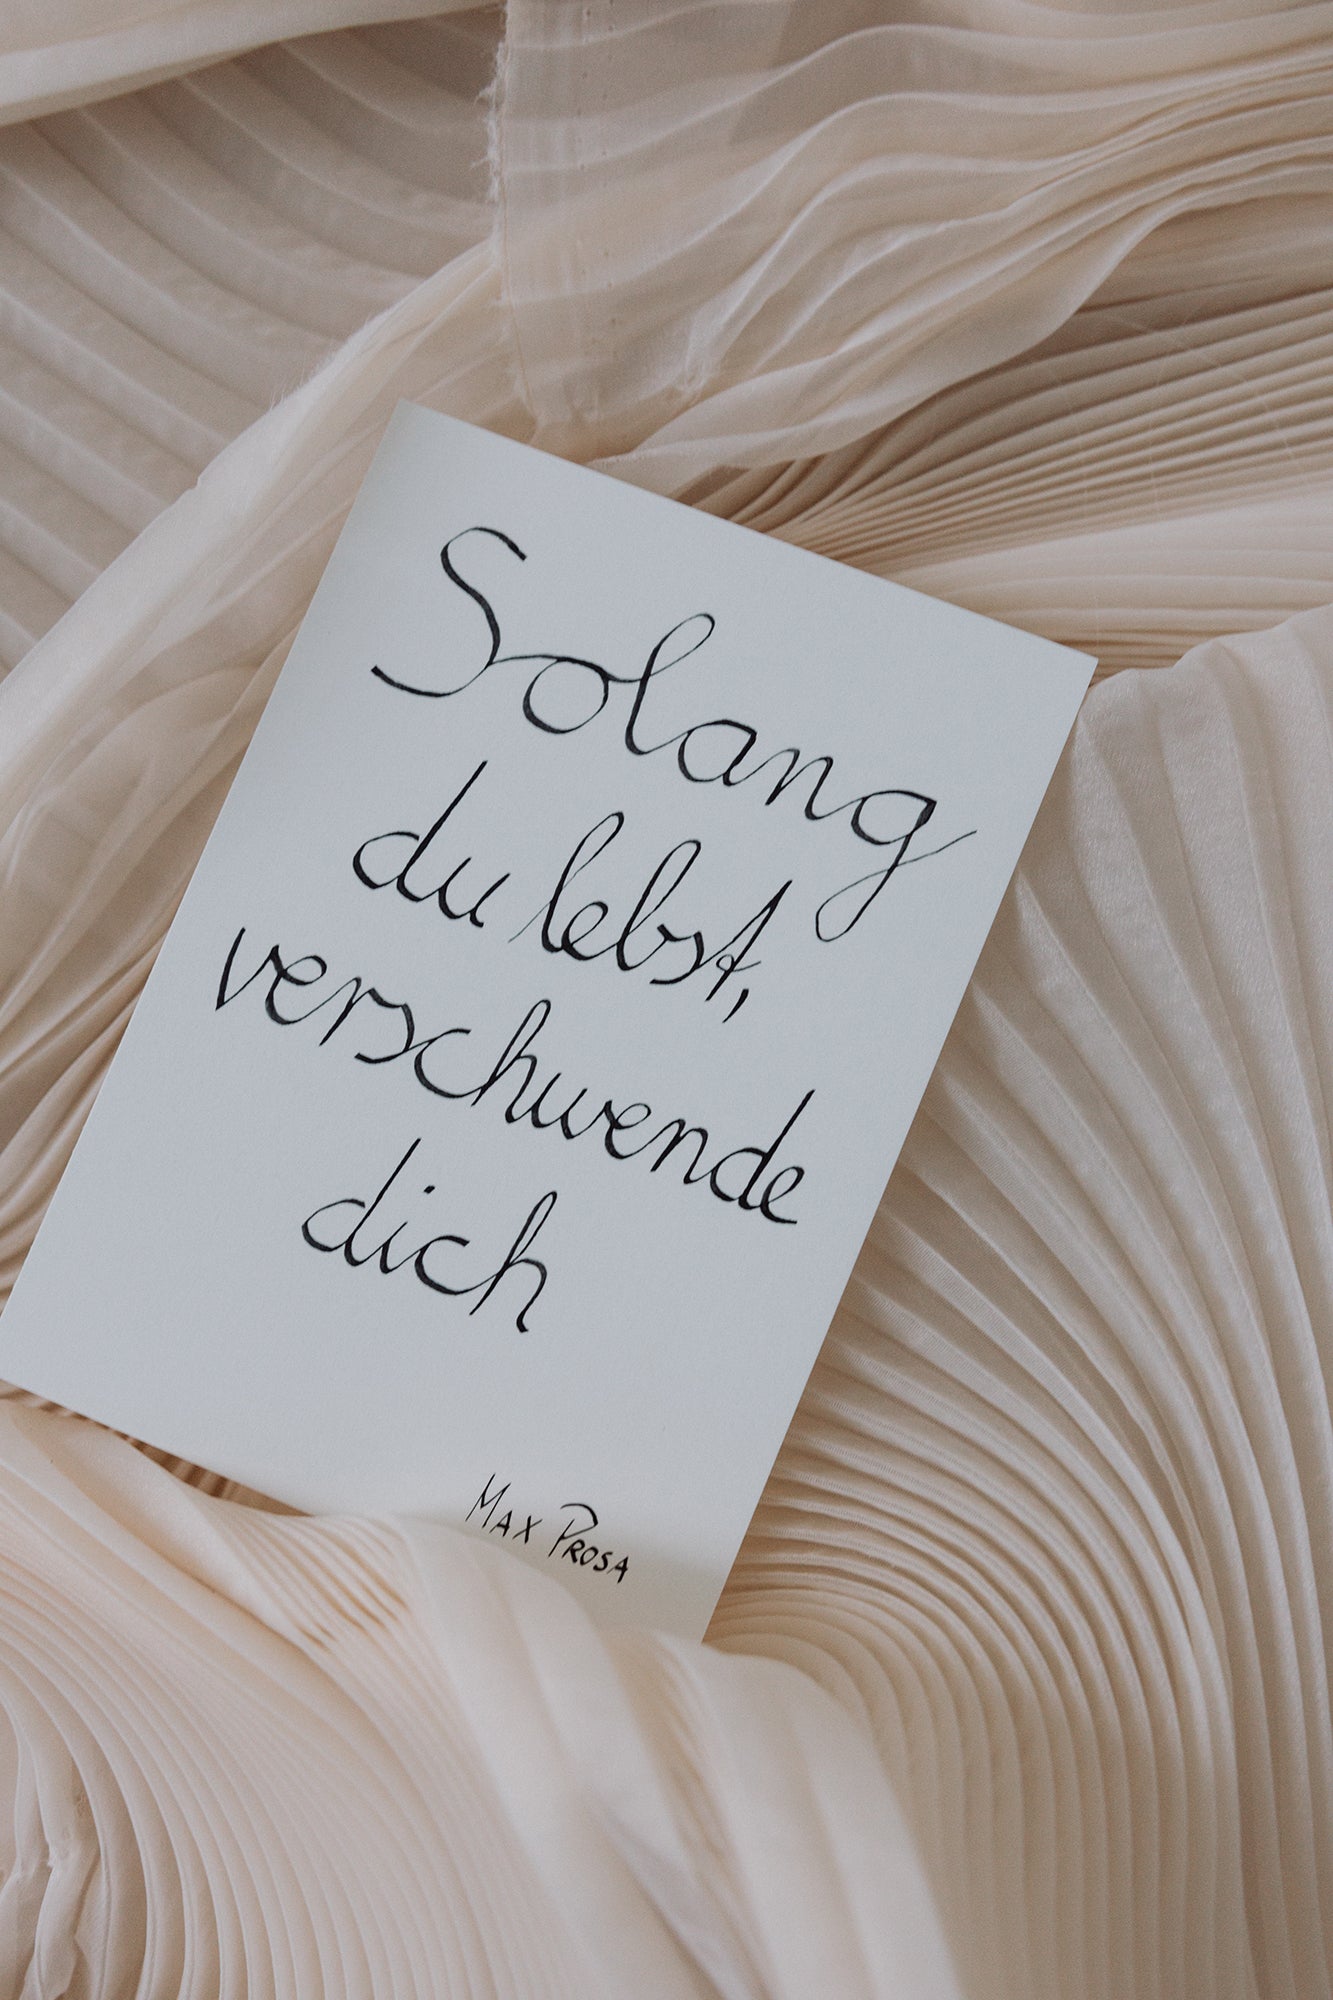 Solang
du lebst,
verschwende
dich
MAX PROSA